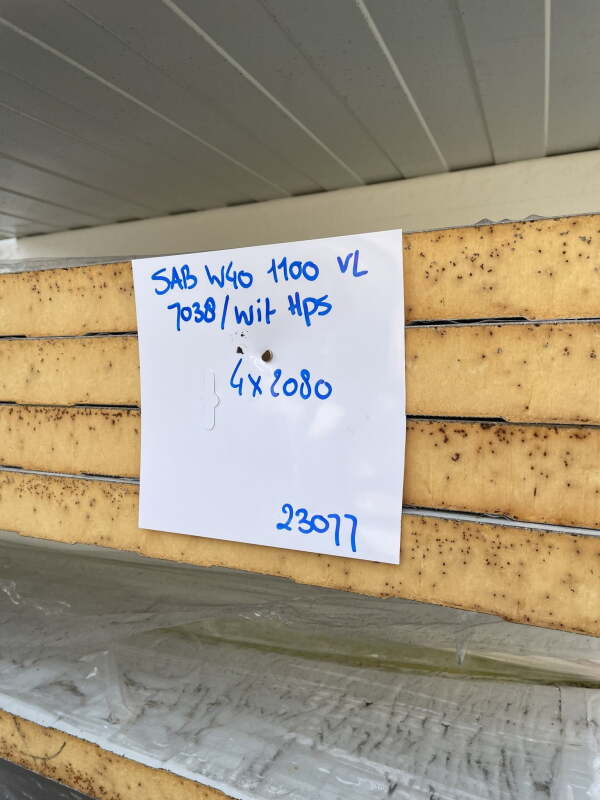 SAB W40 1100 VL
7038/wit Hps
4x2080
23077